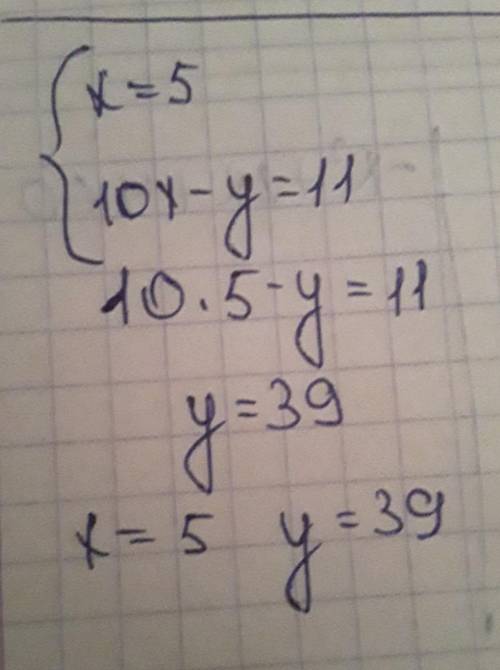 x = 5
10x - y = 11
10 . 5 - y = 11
y = 39
x = 5 y = 39